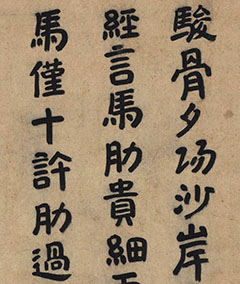 駿骨夕陽沙岸
經言馬肋貴細
馬僅十許肋過